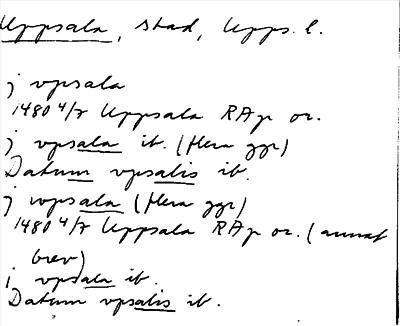 Uppsala, stad, Upps. l.
j vpsala
1480 4/7 Uppsala RAp or.
j vpsala ib. (flera ggr)
Datum vpsalis ib.
j wpsala (flera ggr)
1480 4/7 Uppsala RAp or. (annat
brev)
j vpsala ib.
Datum vpsalis ib.